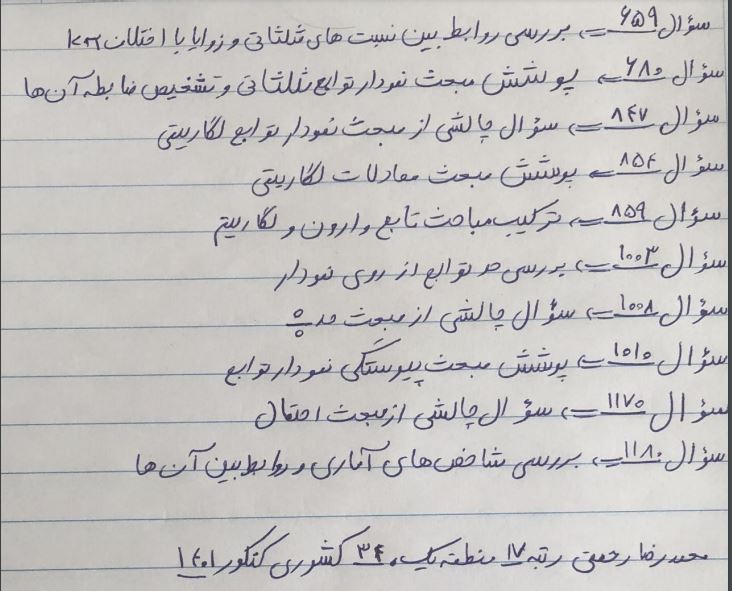 سؤال ۶۵۹ ⇐ بررسی روابط بین نسبت های مثلثاتی و زوایا با اختلاف kπ
سؤال ۶۸۰ ⇐ پوشش مبحث نمودار توابع مثلثاتی و تشخیص ضابطه آن ها
سؤال ۸۴۷ ⇐ سؤال چالشی از مبحث نمودار توابع لگاریتمی
سؤال ۸۵۴ ⇐ پوشش مبحث معادلات لگاریتمی
سؤال ۸۵۹ ⇐ ترکیب مباحث تابع وارون و لگاریتم
سؤال ۱۰۰۳ ⇐ بررسی حد توابع از روی نمودار
سؤال ۱۰۰۸ ⇐ سؤال چالشی از مبحث حد ۰/۰
سؤال ۱۰۱۰ ⇐ پوشش مبحث پیوستگی نمودار توابع
سؤال ۱۱۷۰ ⇐ سؤال چالشی از مبحث احتمال
سؤال ۱۱۸۰ ⇐ بررسی شاخص های آماری و روابط بین آن ها
محمدرضا رحمتی رتبه ۱۷ منطقه یک، ۳۴ کشوری کنکور ۱۴۰۱